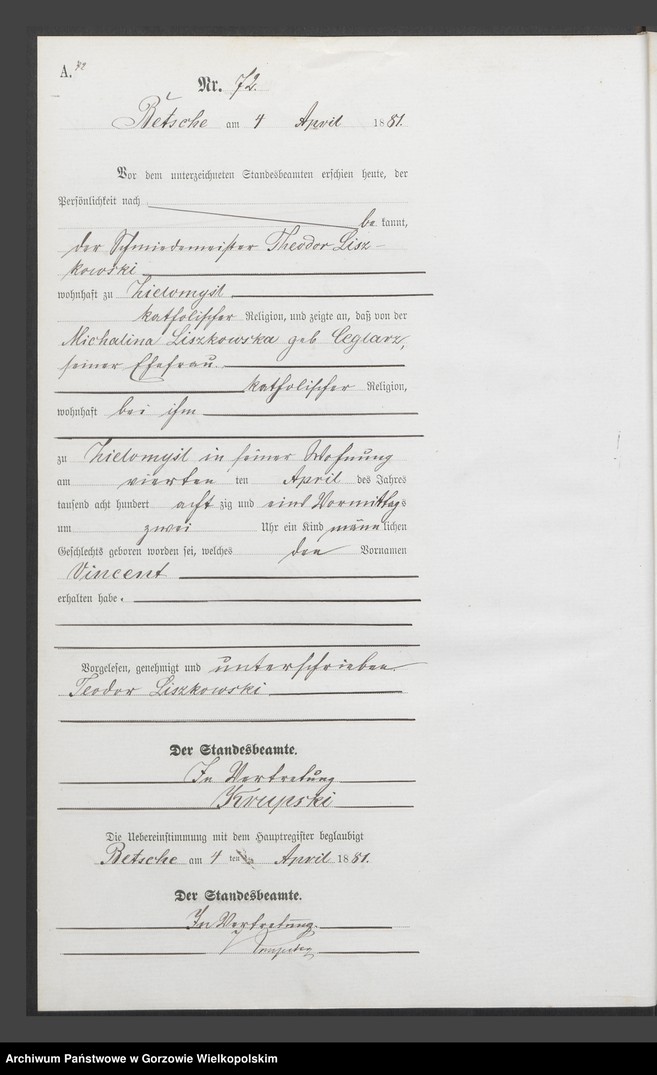 A.
Nr. 72.
Betsche am 4 April 1881.
Vor dem unterzeichneten Standesbeamten erschien heute, der
Persönlichkeit nach
bekannt,
der Schmiedemeister Theodor Lisz-
kowski
wohnhaft zu Zielomysl
katholischer Religion, und zeigte an, daß von der
Michalina Liszkowska geb Ceglarz,
seiner Ehefrau
katholischer Religion,
wohnhaft bei ihm
zu Zielomysl in seiner Wohnung
am vierten ten April des Jahres
tausend acht hundert achtzig und eins Vormittags
um zwei Uhr ein Kind männlichen
Geschlechts geboren worden sei, welches den Vornamen
Vincent
erhalten habe.
Vorgelesen, genehmigt und unterschrieben
Teodor Liszkowski
Der Standesbeamte.
In Vertretung
Krupski
Die Uebereinstimmung mit dem Hauptregister beglaubigt
Betsche am 4 ten April 1881.
Der Standesbeamte.
In Vertretung.
Archiwum Państwowe w Gorzowie Wielkopolskim